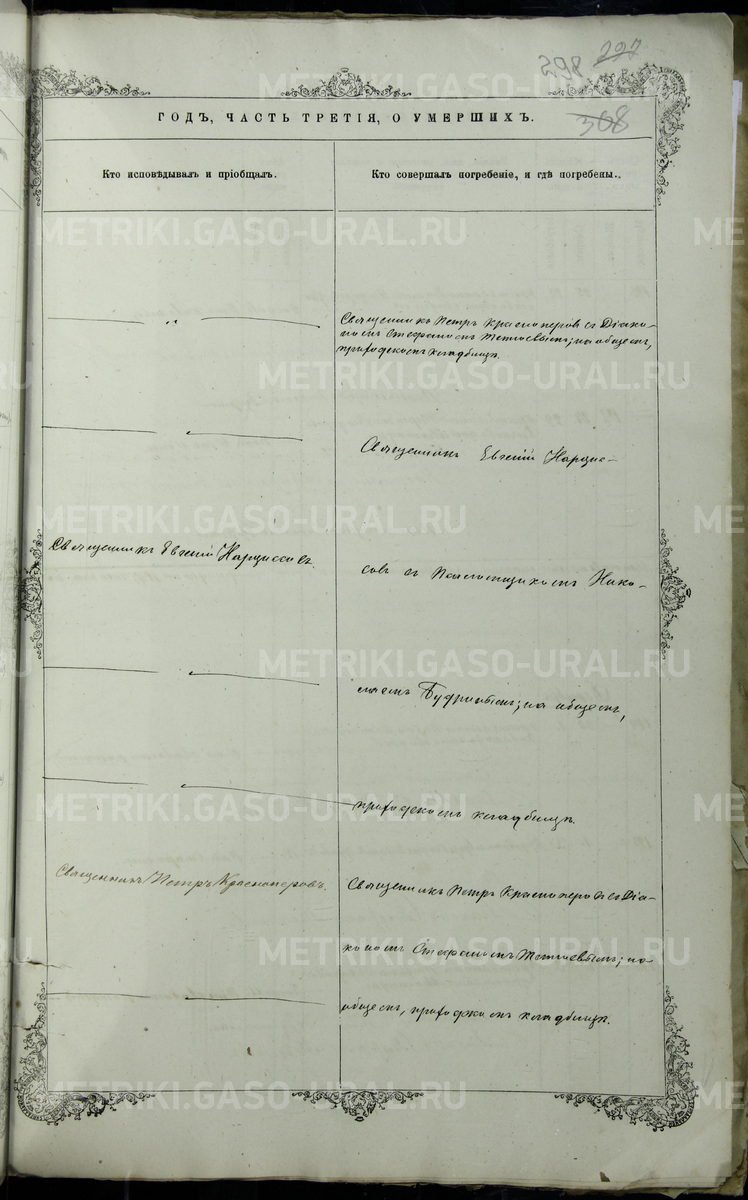 298 297
308
ГОДЪ, ЧАСТЬ ТРЕТІЯ, О УМЕРШИХЪ.
Кто исповѣдывалъ и пріобщалъ.
Кто совершалъ погребеніе, и гдѣ погребены.
Священникъ Петръ Красноперовъ съ Діако-
номъ Стефаномъ; на общемъ,
приходскомъ кладбищѣ.
Священникъ Евгеній Нарцис-
Священникъ Евгеній Нарциссовъ.
совъ съ Псаломщикомъ Нико-
лаемъ на общемъ,
приходскомъ кладбищѣ.
Священникъ Петръ Красноперовъ.
Священникъ Петръ Красноперовъ съ Діа-
кономъ Стефаномъ; на
общемъ, приходскомъ кладбищѣ.
METRIKI.GASO-URAL.RU